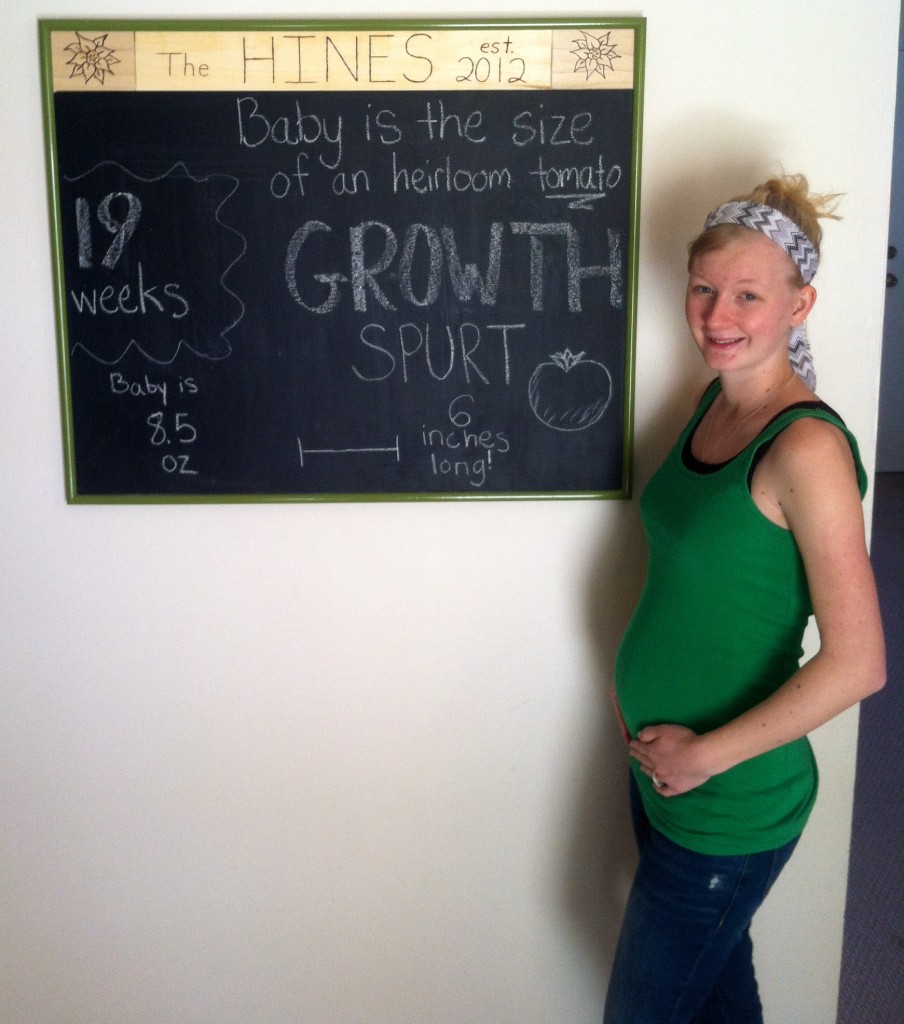 The HINES est. 2012
Baby is the size
of an heirloom tomato
19
weeks
GROWTH
SPURT
Baby is
8.5
oz
6
inches
long!